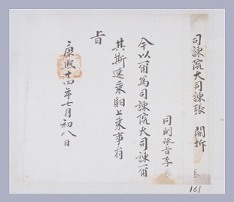 司諫院大司諫張 開拆
同副承旨李
今以爾爲司諫院大司諫爾
其斯速乘馹上來事有
旨
康熙十四年七月初八日